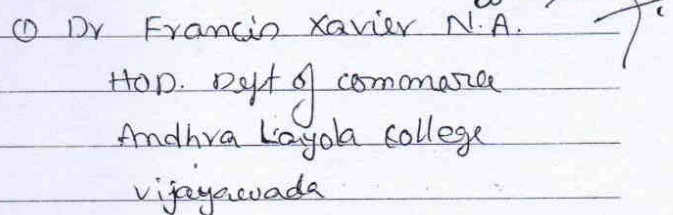 ① Dr Francis Xavier N.A.
HOD. Dept of commarce
Andhra Layola college
vijayawada